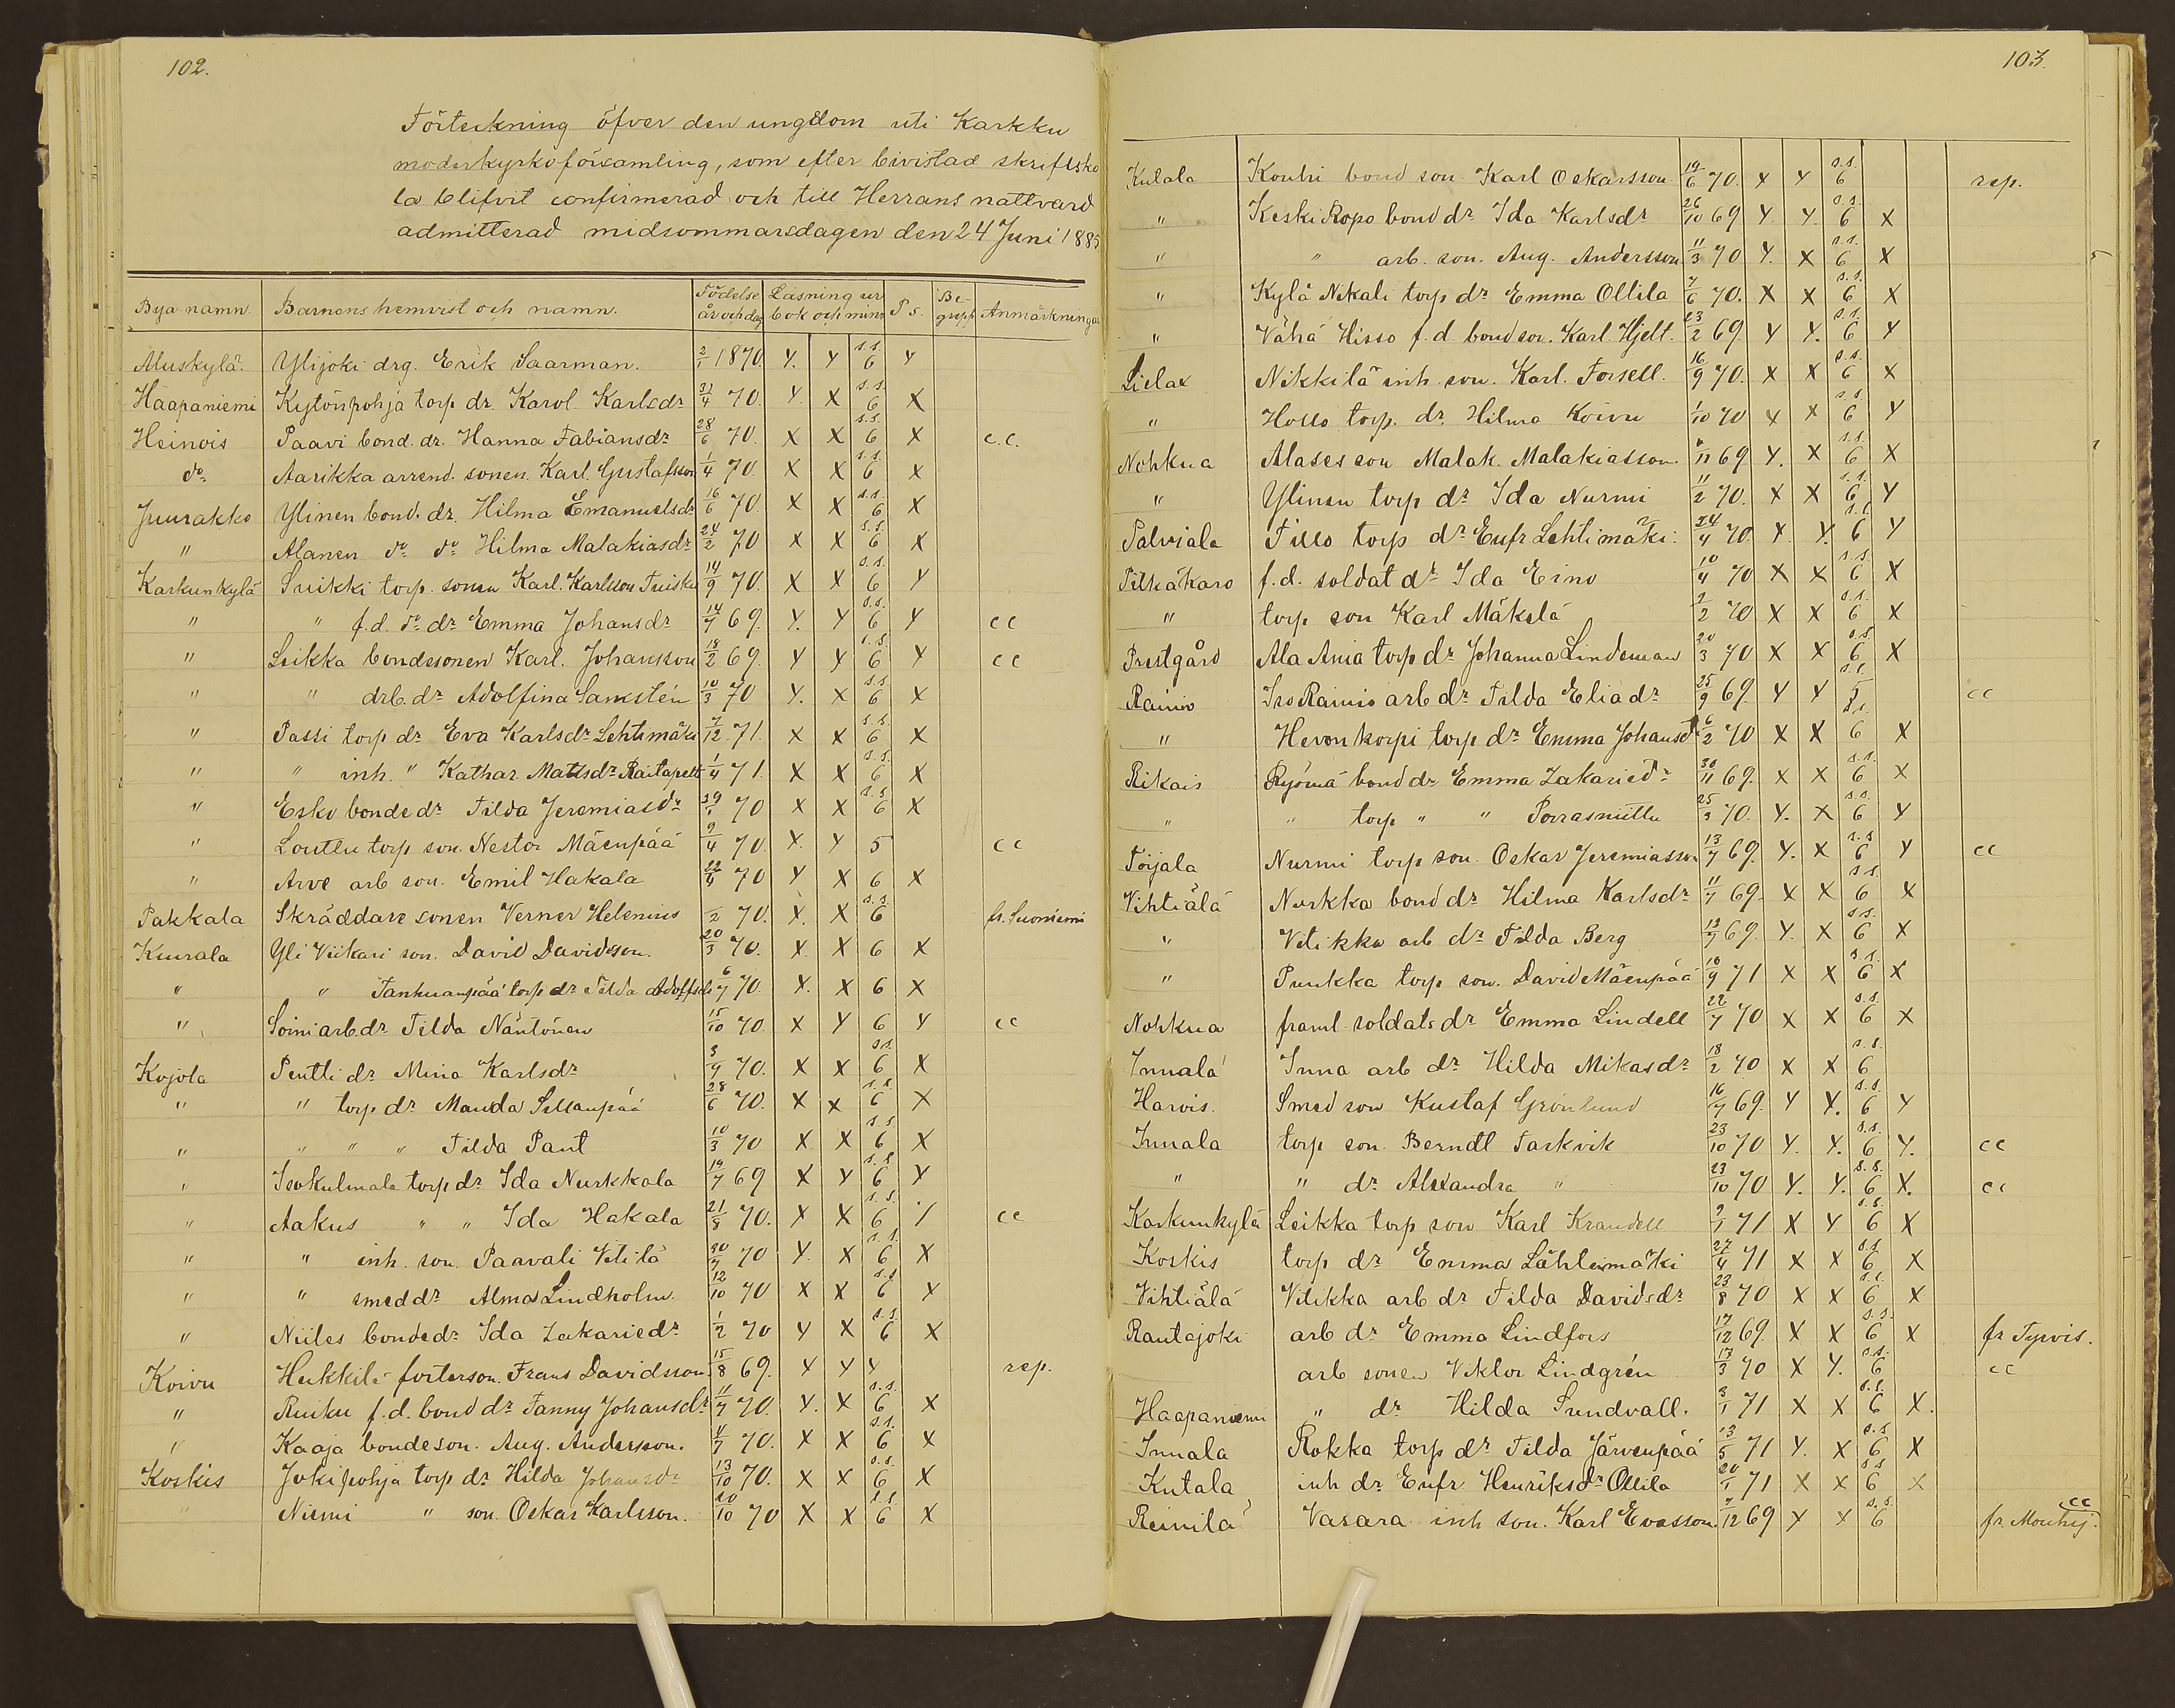 102.
Förteckning öfver den ungdom uti Karkku
moderkyrkoförsamling, som efter bivistad skriftsko
la blifvit confirmerad och till Herrans nattvard
admitterad midsommarsdagen den 24 Juni 1885
Bya namn. Barnens hemvist och namn. Födelse år och dag Läsning ur bok och minne P s. Be- grepp Anmärkningar
Aluskylä. Ylijoki drg. Erik Saarman. 2/1 1870. Y. Y s.s. 6 Y
Haapaniemi Kytönpohja torp dr. Karol. Karlsdr 31/4 70. Y. X s.s. 6 X
Heinois Paavi bond. dr. Hanna Fabiansdr 28/6 70. X X s.s. 6 X c.c.
do Aarikka arrend. sonen. Karl. Gustafsson 1/4 70. X X s.s. 6 X
Juurakko Ylinen bond. dr. Hilma Emanuelsdr 16/6 70. X X s.s. 6 X
" Alanen do do Hilma Malakiasdr 24/2 70 X X s.s. 6 X
Karkunkylä Suikki torp. sonen Karl. Karlsson Tuisku 14/9 70. X X s.s. 6 Y
" " f.d. do dr Emma Johansdr 14/7 69. Y. Y s.s. 6 Y cc
" Leikka bondesonen Karl. Johansson 18/2 69. Y Y s.s. 6 Y cc
" " drb. dr Adolfina Samstén 10/3 70 Y. X s.s. 6 X
" Passi torp dr Eva Karlsdr Lehtimäki 7/12 71. X X s.s. 6 X
" " inh. " Kathar. Mattsdr 1/4 71. X X s.s. 6 X
" Esko bonde dr Tilda Jeremiasdr 29/1 70 X X s.s. 6 X
" Louttu torp son. Nestor Mäenpää 9/4 70. X. Y 5 cc
" Arve arb son. Emil Hakala 22/9 70 Y X 6 X
Pakkala Skräddare sonen Verner Helenius /2 70. X. X s.s. 6 fr. Suoniemi
Kuurala Yli Viikari son. David Davidsson. 20/3 70. X. X 6 X
" " Tanhuanpää torp dr Tilda Adolfsdr 6/7 70. X. X 6 X
" Soini arb. dr Tilda Näntönen 15/10 70. X Y 6 Y cc
Kojola Pentti dr Miina Karlsdr 3/9 70. X X s.s. 6 X
" " torp dr Manda Sillanpää 28/6 70. X X s.s. 6 X
" " " " Tilda Pant 10/3 70 X X s.s. 6 X
" Isokulmala torp dr Ida Nurkkala 19/7 69 X Y s.s. 6 Y
" Aakus " " Ida Hakala 21/8 70. X X s.s. 6 Y cc
" " inh. son. Paavali Vitilä 20/7 70 Y. X s.s. 6 X
" " smed dr Alma Lindholm. 12/10 70 X X s.s. 6 X
" Niiles bonde dr Ida Zakariedr 1/2 70 Y X s.s. 6 X
Koivu Heikkilä fosterson. Frans Davidsson 15/8 69. Y Y Y rep.
" Ruiku f.d. bond dr Fanny Johansdr 11/7 70. Y. X s.s. 6 X
" Kaaja bondeson. Aug. Andersson. 4/7 70. X X s.s. 6 X
Koskis Jokipohja torp dr Hilda Johansdr 13/10 70. X X s.s. 6 X
" Niemi " son. Oskar Karlsson. 20/10 70 X X s.s. 6 X
103.
Kutala Kouhi bond son. Karl Oskarsson. 19/6 70. X Y s.s. 6 rep.
" Keski Ropo bond dr Ida Karlsdr 26/10 69. Y. Y. s.s. 6 X
" " arb. son. Aug. Andersson. 11/3 70 Y. X s.s. 6 X
" Kylä Nikali torp dr Emma Ollila 7/6 70. X X s.s. 6 X
" Vähä Hisso f.d. bond son. Karl. Hjelt. 23/2 69. Y Y. s.s. 6 Y
Lielax Nikkilä inh. son. Karl. Forsell. 16/9 70. X X s.s. 6 X
" Hollo torp. dr. Hilma Koivu 1/10 70 X X s.s. 6 Y
Nohkua Alases son Malak. Malakiasson. /11 69 Y. X s.s. 6 X
" Ylinen torp dr Ida Nurmi 11/2 70. X X s.s. 6 Y
Palviala Tillo torp dr Eufr. Lehtimäki. 24/4 70. Y. Y. s.s. 6 Y
f.d. soldat dr Ida Eino 10/4 70 X X s.s. 6 X
" torp son Karl Mäkelä 2/2 70 X X s.s. 6 X
Prestgård Ala Ania torp dr Johanna Lindeman 20/3 70 X X s.s. 6 X
Rainio Iso Rainio arb dr Tilda Eliadr 25/9 69. Y Y s.s. 5 cc
" Hevonkorpi torp dr Emma Johansdr 6/2 70 X X s.s. 6 X
Rikais Ryömä bond dr Emma Zakariedr 30/11 69. X X s.s. 6 X
" " torp " " Porrasniittu 25/3 70. Y. X s.s. 6 Y
Toijala Nurmi torp son. Oskar Jeremiasson 13/7 69. Y. X s.s. 6 Y cc
Vihtiälä Nurkka bond dr Hilma Karlsdr 11/7 69. X X s.s. 6 X
" Vitikka arb dr Tilda Berg 13/7 69. Y. X s.s. 6 X
" Punkka torp son. David Mäenpää 10/9 71 X X s.s. 6 X
Nohkua framl. soldats dr Emma Lindell 22/7 70 X X s.s. 6 X
Innala Inna arb dr Hilda Mikasdr 18/2 70 X X s.s. 6
Harois. Smed son Kustaf Grönlund 16/7 69. Y Y. s.s. 6 Y
Innala torp son. Berndt Tarkvik 23/10 70 Y. Y. s.s. 6 Y. cc
" " dr Alexandra " 23/10 70 Y. Y. s.s. 6 X. cc
Karkunkylä Leikka torp son Karl Krandell 9/1 71 X Y s.s. 6 X
Koskis torp dr Emma Lähteenmäki 27/4 71 X X s.s. 6 X
Vihtiälä Vitikka arb dr Tilda Davidsdr 23/8 70 X X s.s. 6 X
Rautajoki arb dr Emma Lindfors 17/12 69. X X s.s. 6 X fr Tyrvis.
arb sonen Viktor Lindgrén 13/3 70 X Y. s.s. 6 cc
Haapaniemi " dr Hilda Sundvall. 3/1 71 X X s.s. 6 X.
Innala Rokka torp dr Tilda Järvenpää 13/5 71 Y. X s.s. 6 X
Kutala inh dr Eufr. Henriksdr Ollila 20/1 71 X X s.s. 6 X
Reinilä Vasara inh son. Karl Evasson. 7/12 69 Y X s.s. 6 cc fr. Mouhij.